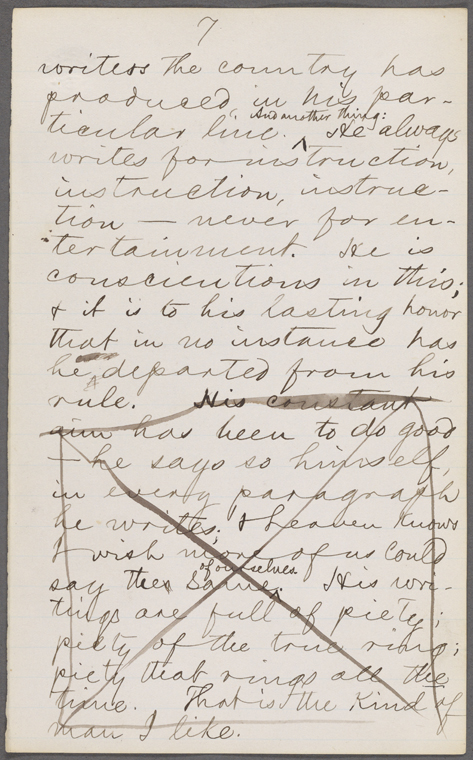 7
writers the country has
produced in his par-
And another thing:
ticular line. He always
writes for instruction,
instruction, instruc-
tion — never for en-
tertainment. He is
conscientious in this;
& it is to his lasting honor
that in no instance has
he departed from his
rule. His constant
aim has been to do good
— he says so himself,
in every paragraph
he writes; & Heaven knows
I wish more of us could
of ourselves.
say the same. His wri-
tings are full of piety;
piety of the true ring;
piety that rings all the
time. That is the kind of
man I like.